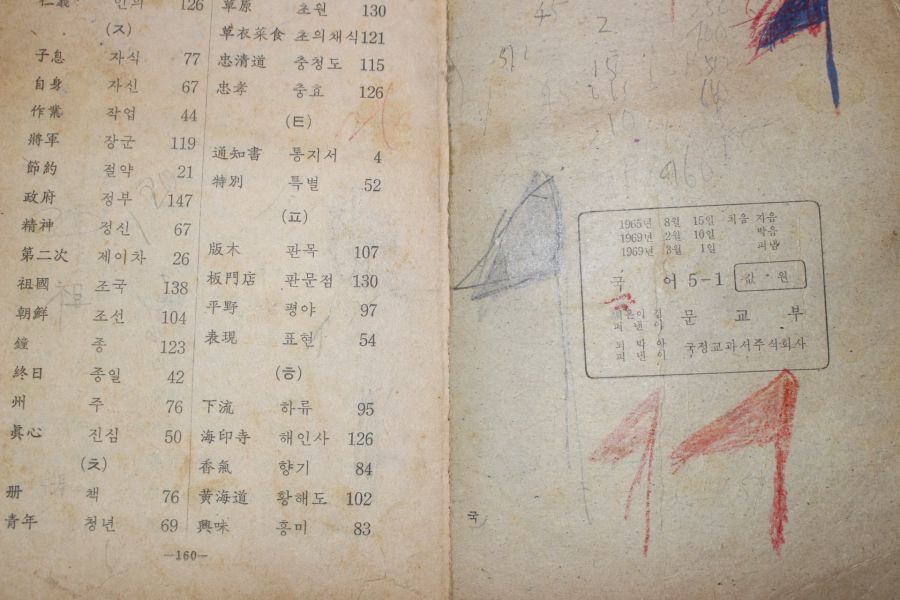 仁義 인의 126
(ㅈ)
子息 자식 77
自身 자신 67
作業 작업 44
將軍 장군 119
節約 절약 21
政府 정부 147
精神 정신 67
第二次 제이차 26
祖國 조국 138
朝鮮 조선 104
鐘 종 123
終日 종일 42
州 주 76
眞心 진심 50
(ㅊ)
册 책 76
靑年 청년 69
草原 초원 130
草衣菜食 초의채식 121
忠淸道 충청도 115
忠孝 충효 126
(ㅌ)
通知書 통지서 4
特別 특별 52
(ㅍ)
版木 판목 107
板門店 판문점 130
平野 평야 97
表現 표현 54
(ㅎ)
下流 하류 95
海印寺 해인사 126
香氣 향기 84
黃海道 황해도 102
興味 흥미 83
—160—
1965년 8월 15일 처음 지음
1969년 2월 10일 박음
1969년 3월 1일 펴냄
국 어 5-1 값 원
문 교 부
펴 낸 이
국정교과서주식회사
국